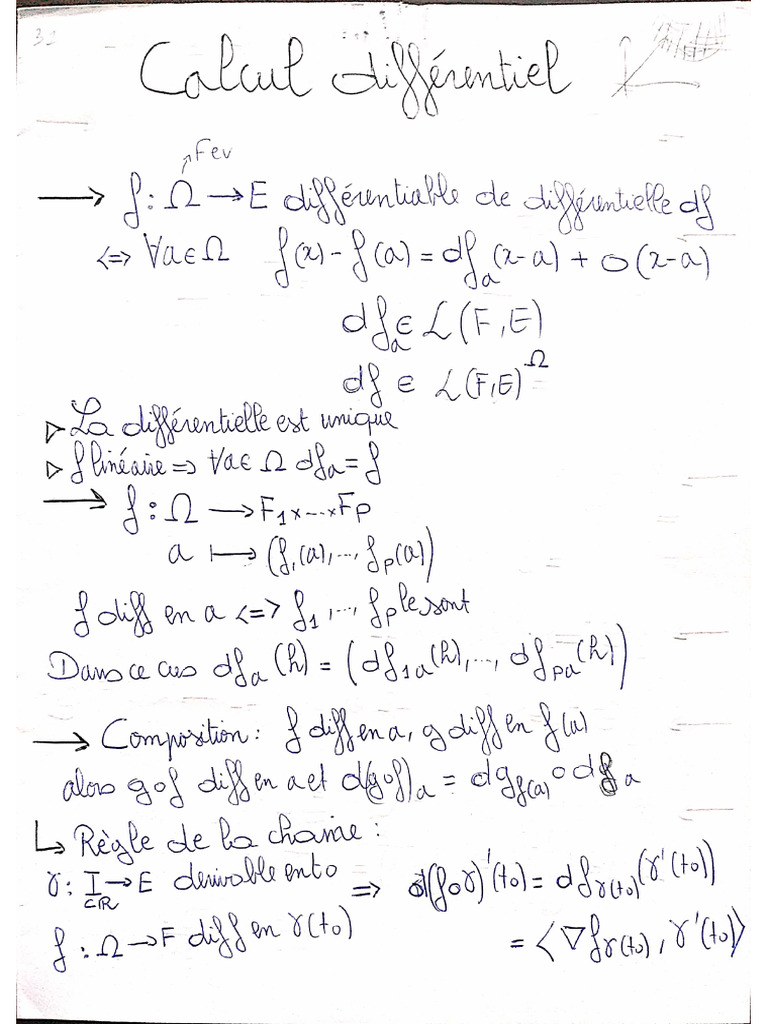 32
Calcul différentiel
Fev
→ f : Ω → E différentiable de différentielle df
<=> ∀a∈Ω f(x) - f(a) = df_a(x-a) + o(x-a)
df_a ∈ L(F,E)
df ∈ L(F,E)^Ω
▷ La différentielle est unique
▷ f linéaire => ∀a∈ Ω df_a = f
→ f : Ω → F_1×...×F_p
a ↦ (f_1(a),..., f_p(a))
f diff en a <=> f_1,..., f_p le sont
Dans ce cas df_a(h) = (df_1a(h),..., df_pa(h))
→ Composition : f diff en a, g diff en f(a)
alors gof diff en a et d(gof)_a = dg_f(a) o df_a
↳ Règle de la chaine :
γ : I → E derivable en t_0 => (foγ)'(t_0) = df_γ(t_0)(γ'(t_0))
⊂ℝ
f : Ω → F diff en γ(t_0) = ⟨∇f_γ(t_0), γ'(t_0)⟩